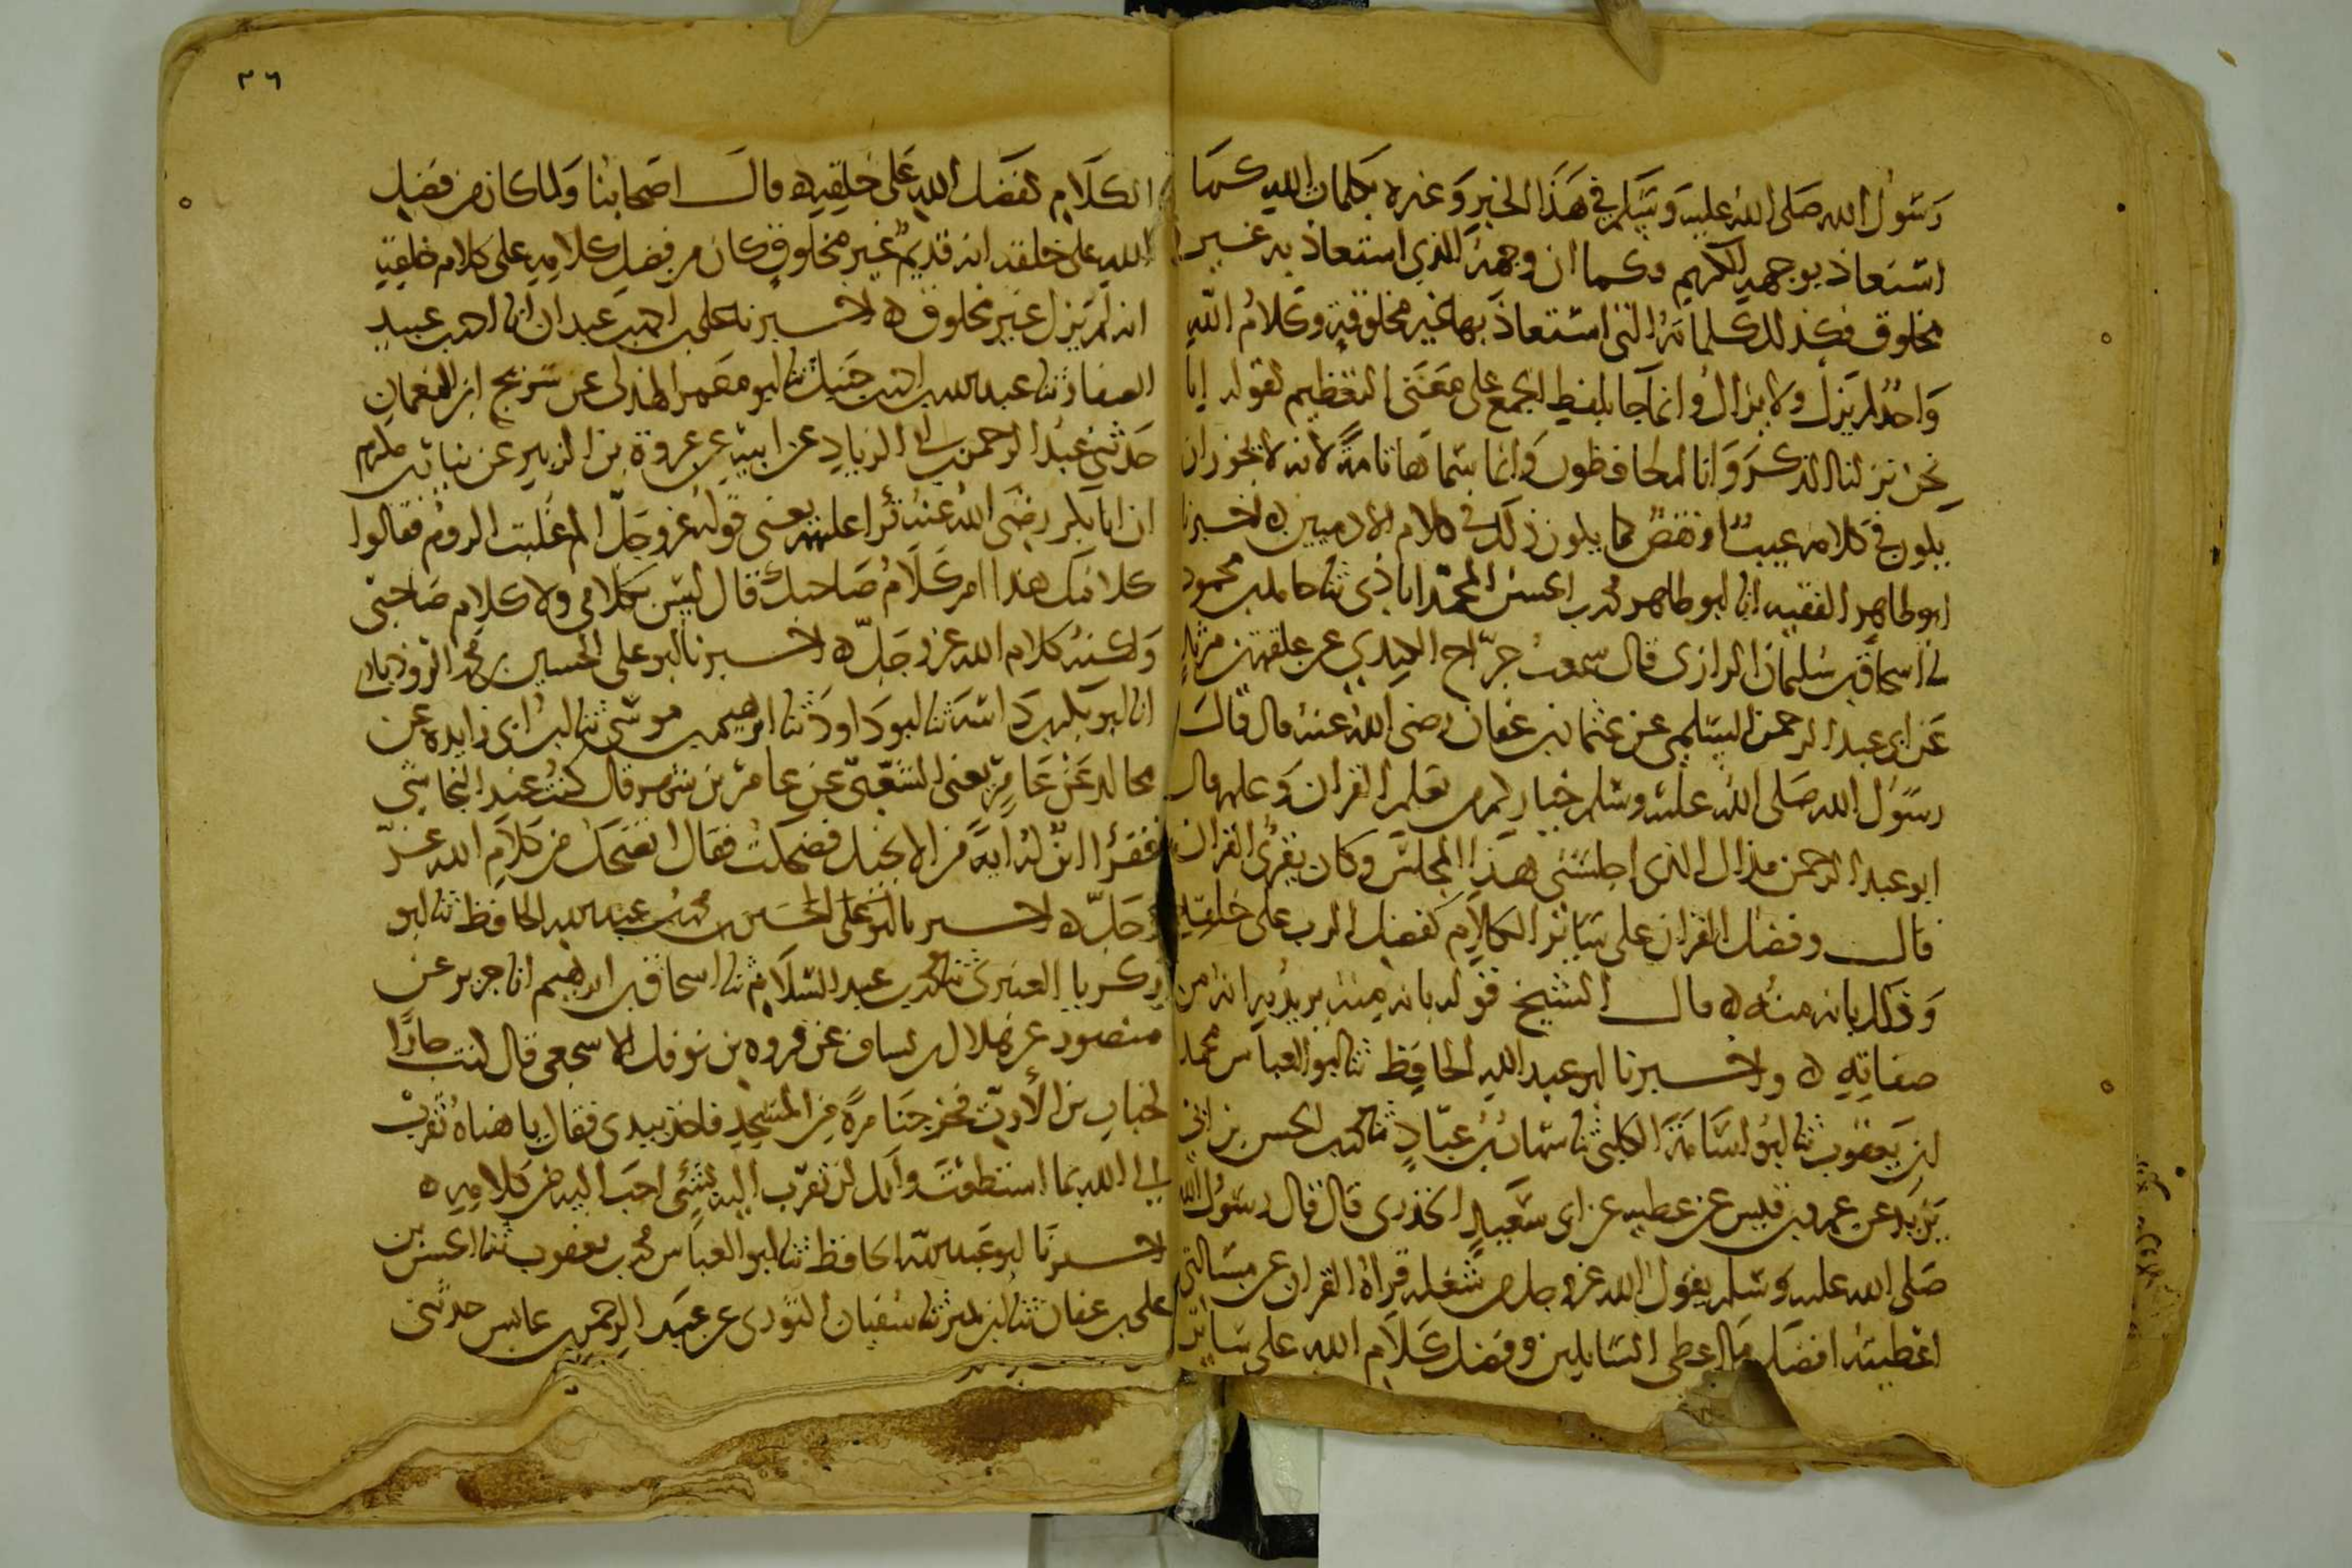 رسول الله صلى الله عليه وسلم في هذا الخبر وغيره بكلمات الله كما
استعاذ بوجهه الكريم وكما ان وجهه الذي استعاذ به غير
مخلوق فكذلك كلماته التي استعاذ بها غير مخلوقة وكلام الله
واحد لم يزل ولا يزال وانما جا بلفظ الجمع على معنى التعظيم لقوله انا
نحن نزلنا الذكر وانا له لحافظون وانما سماها تامة لانه لا يجوز ان
يكون في كلامه عيب او نقص كما يكون ذلك في كلام الادميين ه اخبرنا
ابو طاهر الفقيه انا ابو طاهر محمد بن الحسن المحمداباذي ثنا حامد بن محمود
ثنا اسحاق بن سليمان الرازي قال سمعت جراح الكندي عن علقمة بن مرثد
عن ابي عبد الرحمن السلمي عن عثمان بن عفان رضي الله عنه قال قال
رسول الله صلى الله عليه وسلم خياركم من تعلم القران وعلمه قال
ابو عبد الرحمن فذاك الذي اجلسني هذا المجلس وكان يقرئ القران
قال وفضل القران على سائر الكلام كفضل الرب على خلقه
وذلك بانه منه ه قال الشيخ قوله بانه منه يريد به انه من
صفاته ه واخبرنا ابو عبد الله الحافظ ثنا ابو العباس محمد
ابن يعقوب ثنا ابو اسامة الكلبي ثنا شهاب بن عباد ثنا محمد بن الحسن بن ابي
يزيد عن عمرو بن قيس عن عطيه عن ابي سعيد الخدري قال قال رسول الله
صلى الله عليه وسلم يقول الله عز وجل من شغله قراة القران عن مسالتي
اعطيته افضل ما اعطي السايلين وفضل كلام الله على ساير
٣٦
الكلام كفضل الله على خلقه ه قال اصحابنا ولما كان من فضل
الله على خلقه انه قديم غير مخلوق كان من فضل كلامه على كلام خلقه
انه لم يزل غير مخلوق ه اخبرنا على بن احمد بن عبدان انا احمد بن عبيد
الصفار ثنا عبد الله بن احمد بن حنبل ثنا ابو معمر الهذلي عن سريج ابن النعمان
حدثني عبد الرحمن بن ابي الزناد عن ابيه عن عروة بن الزبير عن نيار بن مكرم
ان ابا بكر رضي الله عنه قرا عليهم يعني قوله عز وجل الم غلبت الروم فقالوا
كلامك هذا ام كلام صاحبك قال ليس بكلامي ولا كلام صاحبي
ولكنه كلام الله عز وجل ه اخبرنا ابو على الحسين بن محمد الروذباري
انا ابو بكر بن داسة ثنا ابو داود ثنا ابرهيم بن موسى ثنا ابن ابي زايده عن
مجالد عن عامر يعني الشعبي عن عامر بن شهر قال كنت عند النجاشي
فقرا ابن له اية من الانجيل فضحكت فقال اتضحك من كلام الله عز
وجل ه اخبرنا ابو عبد الله الحافظ ثنا ابو
زكريا العنبري ثنا محمد بن عبد السلام ثنا اسحاق بن ابرهيم انا جرير عن
منصور عن هلال بن يساف عن فروه بن نوفل الاشجعي قال كنت جارا
لخباب بن الأرت فخرجنا مرة من المسجد فاخذ بيدي فقال يا هناه تقرب
الى الله بما استطعت وانك لن تقرب اليه بشئ احب اليه من كلامه ه
اخبرنا ابو عبد الله الحافظ ثنا ابو العباس محمد بن يعقوب ثنا الحسن بن
على بن عفان ثنا ابن نمير ثنا سفيان الثوري عن عبد الرحمن بن عابس حدثني